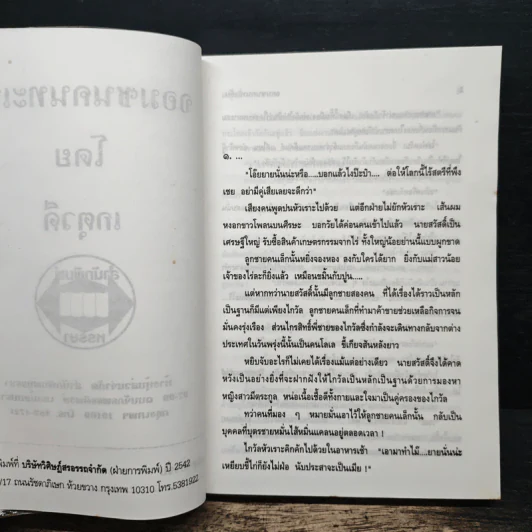 พิมพ์ที่ บริษัทวิสิษฎ์สรอรรถจำกัด (ฝ่ายการพิมพ์) ปี 2542
/17 ถนนรัชดาภิเษก ห้วยขวาง กรุงเทพ 10310 โทร.5381922
๑. ...
"โอ๊ยยายนั่นน่ะหรือ....บอกแล้วไงป๊ะป๋า.... ต่อให้โลกนี้ไร้สตรีที่พึง
เชย อย่ามีคู่เสียเลยจะดีกว่า"
เสียงคนพูดปนหัวเราะไปด้วย แต่อีกฝ่ายไม่ยักหัวเราะ เส้นผม
หงอกขาวโพลนบนศีรษะ บอกวัยได้ค่อนคนเข้าไปแล้ว นายสวัสดิ์เป็น
เศรษฐีใหญ่ รับซื้อสินค้าเกษตรกรรมจากไร่ ทั้งใหญ่น้อยย่านนี้แบบผูกขาด
ลูกชายคนเล็กนั้นหยิ่งจองหอง ลงกับใครได้ยาก ยิ่งกับแม่สาวน้อย
เจ้าของไร่ละก็ยิ่งแล้ว เหมือนขมิ้นกับปูน.....
แต่หากหากว่านายสวัสดิ์นั้นมีลูกชายสองคน ที่ได้เรื่องได้ราวเป็นหลัก
เป็นฐานก็มีแต่เพียงไกวัล ลูกชายคนเล็กที่ทำมาค้าขายช่วยเหลือกิจการจน
มั่นคงรุ่งเรือง ส่วนไกรสิทธิ์พี่ชายของไกวัลซึ่งกำลังจะเดินทางกลับจากต่าง
ประเทศในวันพรุ่งนี้นั้นเป็นคนโลเล ขี้เกียจสันหลังยาว
หยิบจับอะไรก็ไม่เคยได้เรื่องแม้แต่อย่างเดียว นายสวัสดิ์จึงได้คาด
หวังเป็นอย่างยิ่งที่จะฝากฝังให้ไกวัลเป็นหลักเป็นฐานด้วยการมองหา
หญิงสาวมีตระกูล หน่อเนื้อเชื้อดีทั้งกายและใจมาเป็นคู่ครองของไกวัล
ทว่าคนที่มอง ๆ หมายมั่นเอาไว้ให้ลูกชายคนเล็กนั้น กลับเป็น
บุคคลที่บุตรชายหมั่นไส้หมิ่นแคลนอยู่ตลอดเวลา !
ไกวัลหัวเราะคิกคักไปด้วยในอาหารเช้า "เอามาทำไม้....ยายนั่นน่ะ
เหยียบขี้ไก่ก็ยังไม่ฝ่อ นับประสาจะเป็นเมีย !"